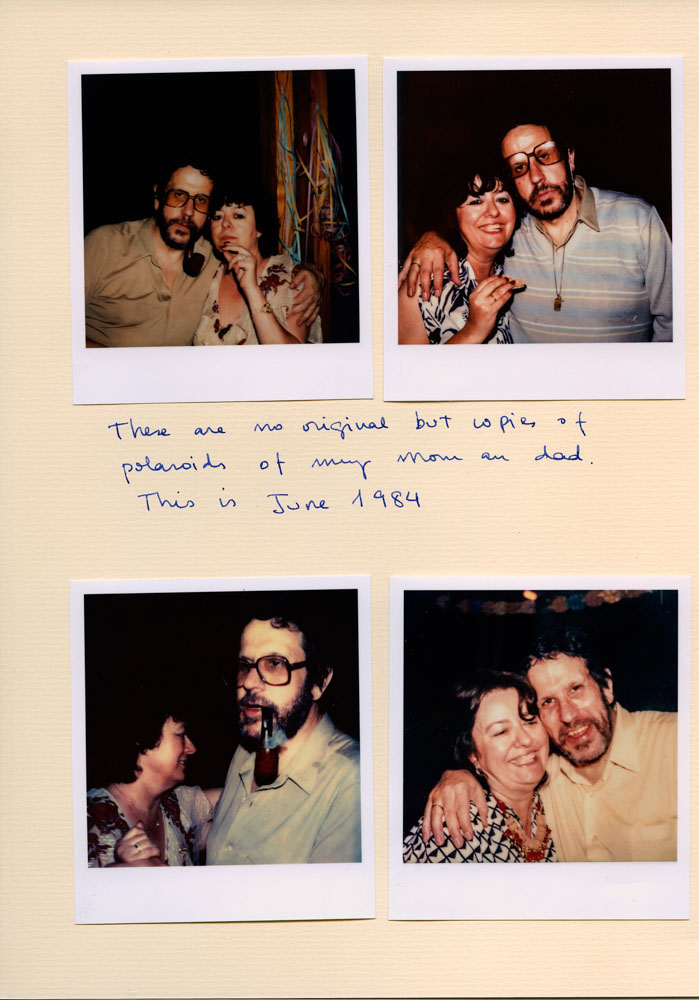 These are no original but copies of
polaroids of my mom an dad.
This is June 1984